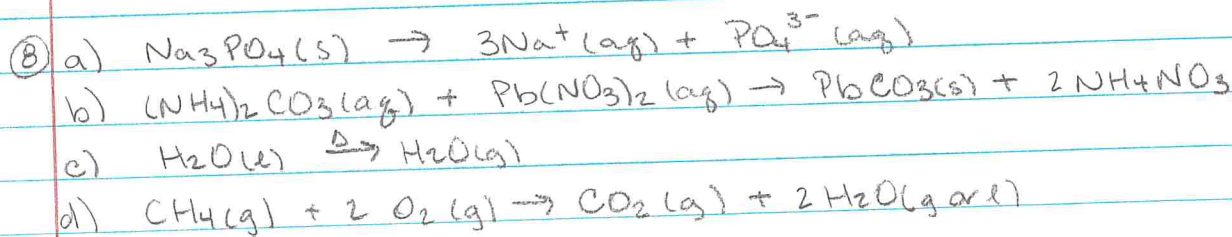 ⑧ a) Na3PO4(s) → 3Na⁺(aq) + PO4³⁻(aq)
b) (NH4)2CO3(aq) + Pb(NO3)2(aq) → PbCO3(s) + 2NH4NO3
c) H2O(l) Δ→ H2O(g)
d) CH4(g) + 2 O2(g) → CO2(g) + 2H2O(g or l)